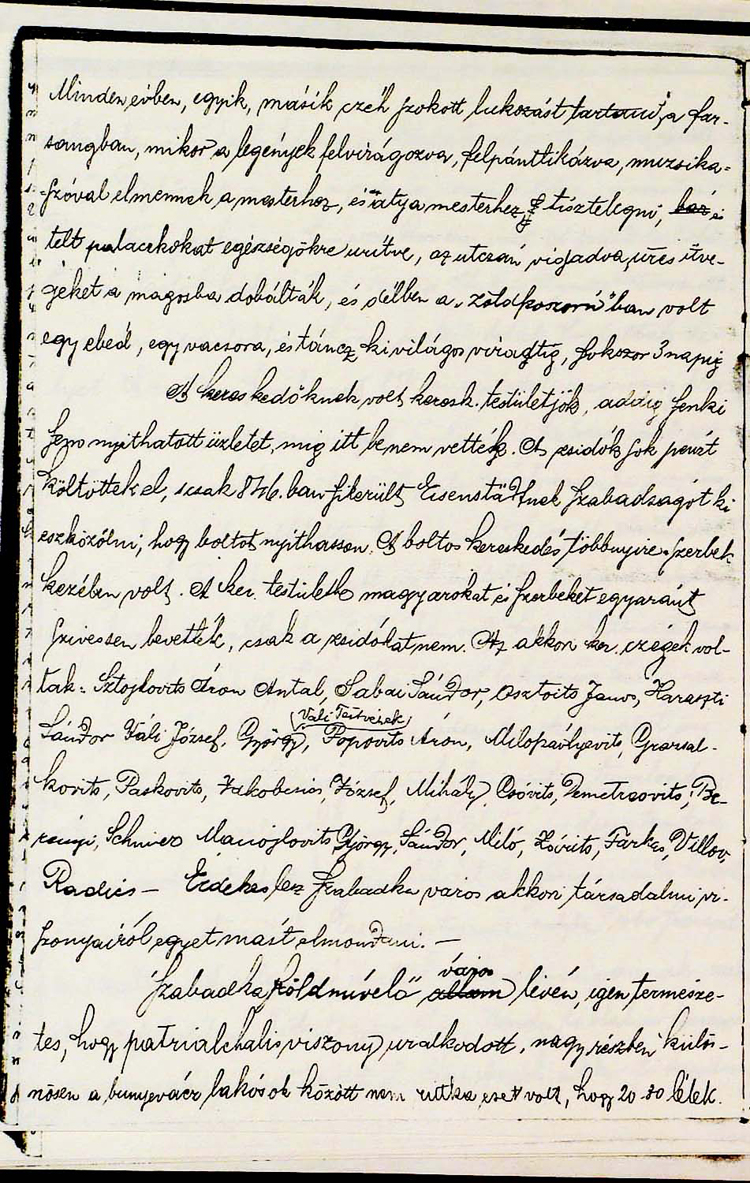 Minden évben, egyik, másik czéh szokott lakozást tartani, a far-
sangban, mikor a legények felvirágozva, felpántlikázva, muzsika-
szóval elmennek a mesterhez, és atya mesterhez tisztelegni,
telt palaczkokat egészségökre urítve, az utczán vigadva, üres üve-
geket a magosba dobálták, és délben a "zöld koszorú"ban volt
egy ebéd, egy vacsora, és táncz ki világos virradtig, sokszor 3 napig
A kereskedőknek volt keresk. testületjök, addig senki
sem nyithatott üzletet, mig itt be nem vették. A zsidók sok pénzt
költöttek el, s csak 846.ban sikerült Eisenstädtnek szabadságot ki
eszközölni, hogy boltot nyithasson. A boltos kereskedés többnyire szerbek
kezében volt. A ker. testületbe magyarokat és szerbeket egyaránt
szivessen bevették, csak a zsidókat nem. Az akkori ker. czégek vol-
tak: Sztojkovits Áron Antal, Sabai Sándor, Osztoits János, Haraszti
Sándor Váli József, György, (Váli Testvérek) Popovits Áron, Milopávlyevits, Grassal-
kovits, Paskovits, Jakobcsics, József, Mihály, Csóvits, Demetrovits, Be-
rényi, Schnier Manojlovits György, Sándor, Miló, Zórits, Farkas, Villov,
Radics – Érdekes lesz Szabadka város akkori társadalmi vi-
szonyairól egyet mást elmondani. –
Szabadka "földmúvelő" város állam lévén, igen természe-
tes, hogy patrialchalis viszony uralkodott, nagy részben külö-
nösen a bunyevácz lakósok között nem ritka eset volt, hogy 20-30 lélek.